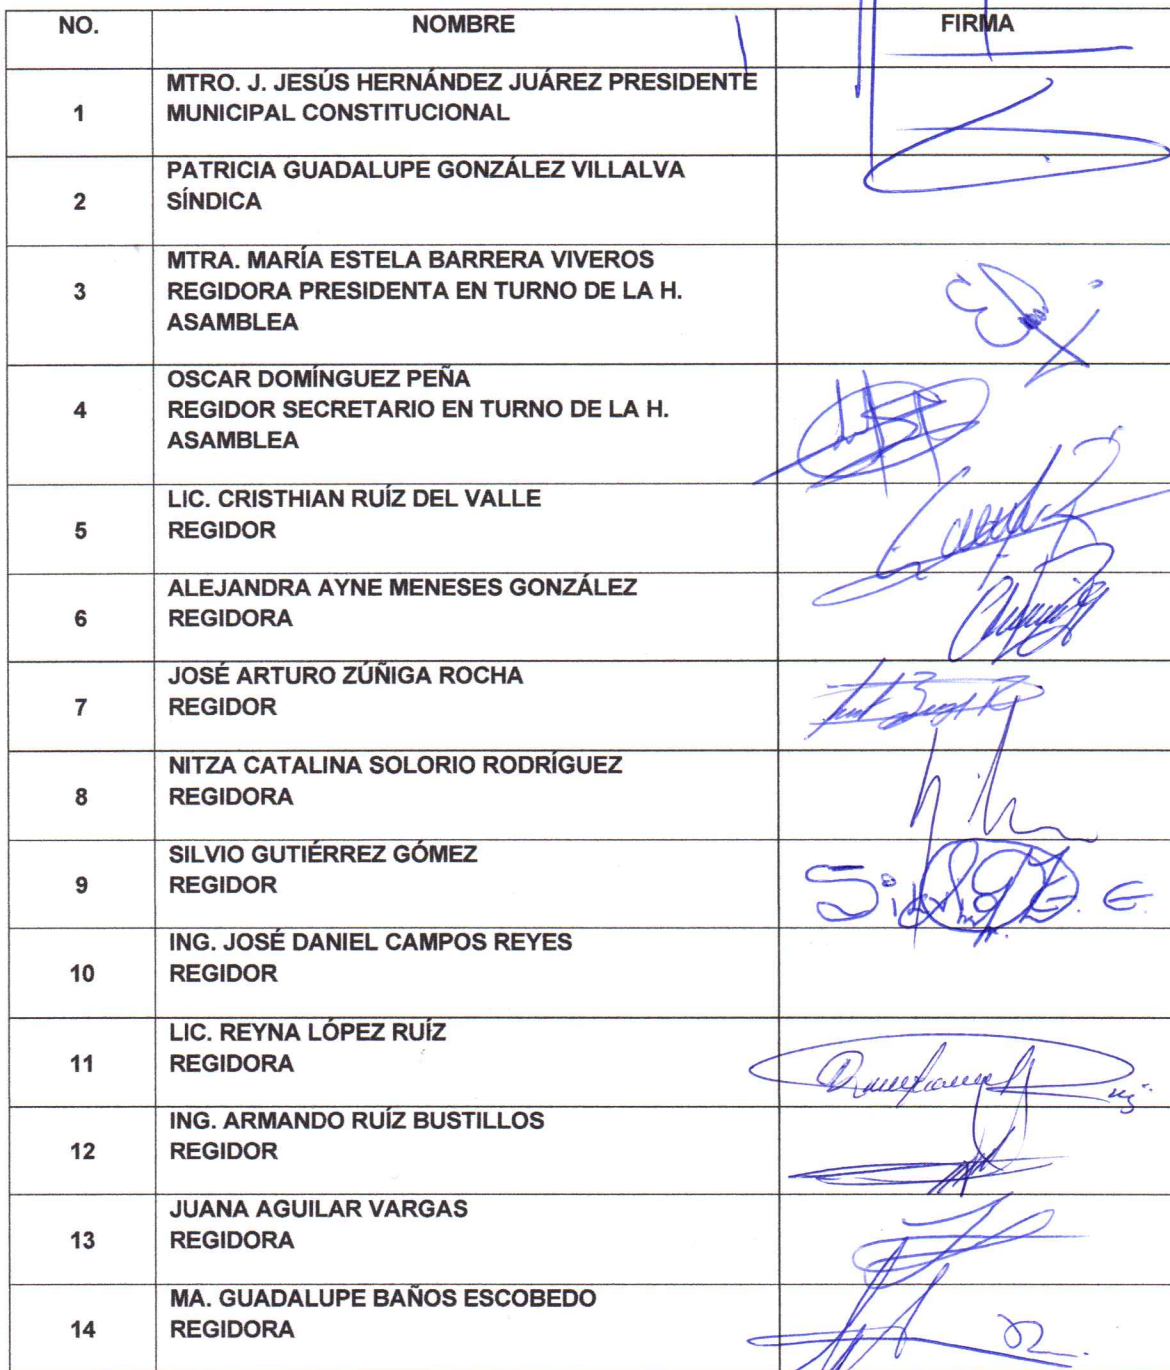 NO. NOMBRE FIRMA
1 MTRO. J. JESÚS HERNÁNDEZ JUÁREZ PRESIDENTE
MUNICIPAL CONSTITUCIONAL
2 PATRICIA GUADALUPE GONZÁLEZ VILLALVA
SÍNDICA
3 MTRA. MARÍA ESTELA BARRERA VIVEROS
REGIDORA PRESIDENTA EN TURNO DE LA H.
ASAMBLEA
4 OSCAR DOMÍNGUEZ PEÑA
REGIDOR SECRETARIO EN TURNO DE LA H.
ASAMBLEA
5 LIC. CRISTHIAN RUÍZ DEL VALLE
REGIDOR
6 ALEJANDRA AYNE MENESES GONZÁLEZ
REGIDORA
7 JOSÉ ARTURO ZÚÑIGA ROCHA
REGIDOR
8 NITZA CATALINA SOLORIO RODRÍGUEZ
REGIDORA
9 SILVIO GUTIÉRREZ GÓMEZ
REGIDOR
10 ING. JOSÉ DANIEL CAMPOS REYES
REGIDOR
11 LIC. REYNA LÓPEZ RUÍZ
REGIDORA
12 ING. ARMANDO RUÍZ BUSTILLOS
REGIDOR
13 JUANA AGUILAR VARGAS
REGIDORA
14 MA. GUADALUPE BAÑOS ESCOBEDO
REGIDORA